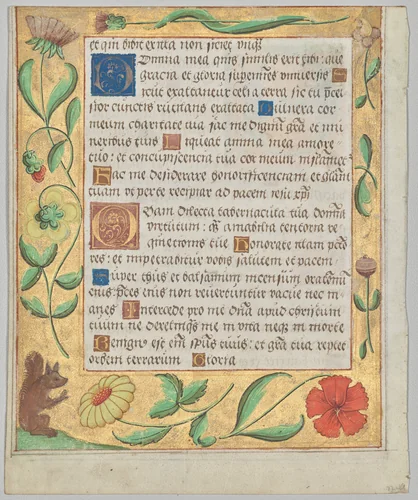 et qui bibit ex ea non siciet usque
Domina mea quis similis erit tibi: que
gracia et gloria supereminens universis
Sicut exaltantur celi a terra sic tu precel
sior cunctis exaltata Vulnera cor
meum charitate tua fac me dignum gratia et mu
neribus tuis Liqueat anima mea amore
tuo: et concupiscencia tua cor meum inflamet
Fac me desiderare honorificenciam et gloriam
tuam ut per te recipiar ad pacem iesu xpi
Quam dilecta tabernacula tua domina
virtutum: quam amabilia tentoria re
quietionis tue Honorate illam pecca
tores: et impetrabitur vobis salutem et pacem
Super thus et balsamum incensum orationum
eius preces eius non revertuntur vacue nec in
anes Intercede pro me domina apud christum
tuum ne derelinquas me in vita neque in morte
Benignus est enim spiritus tuus: et gratia tua replet
orbem terrarum Gloria